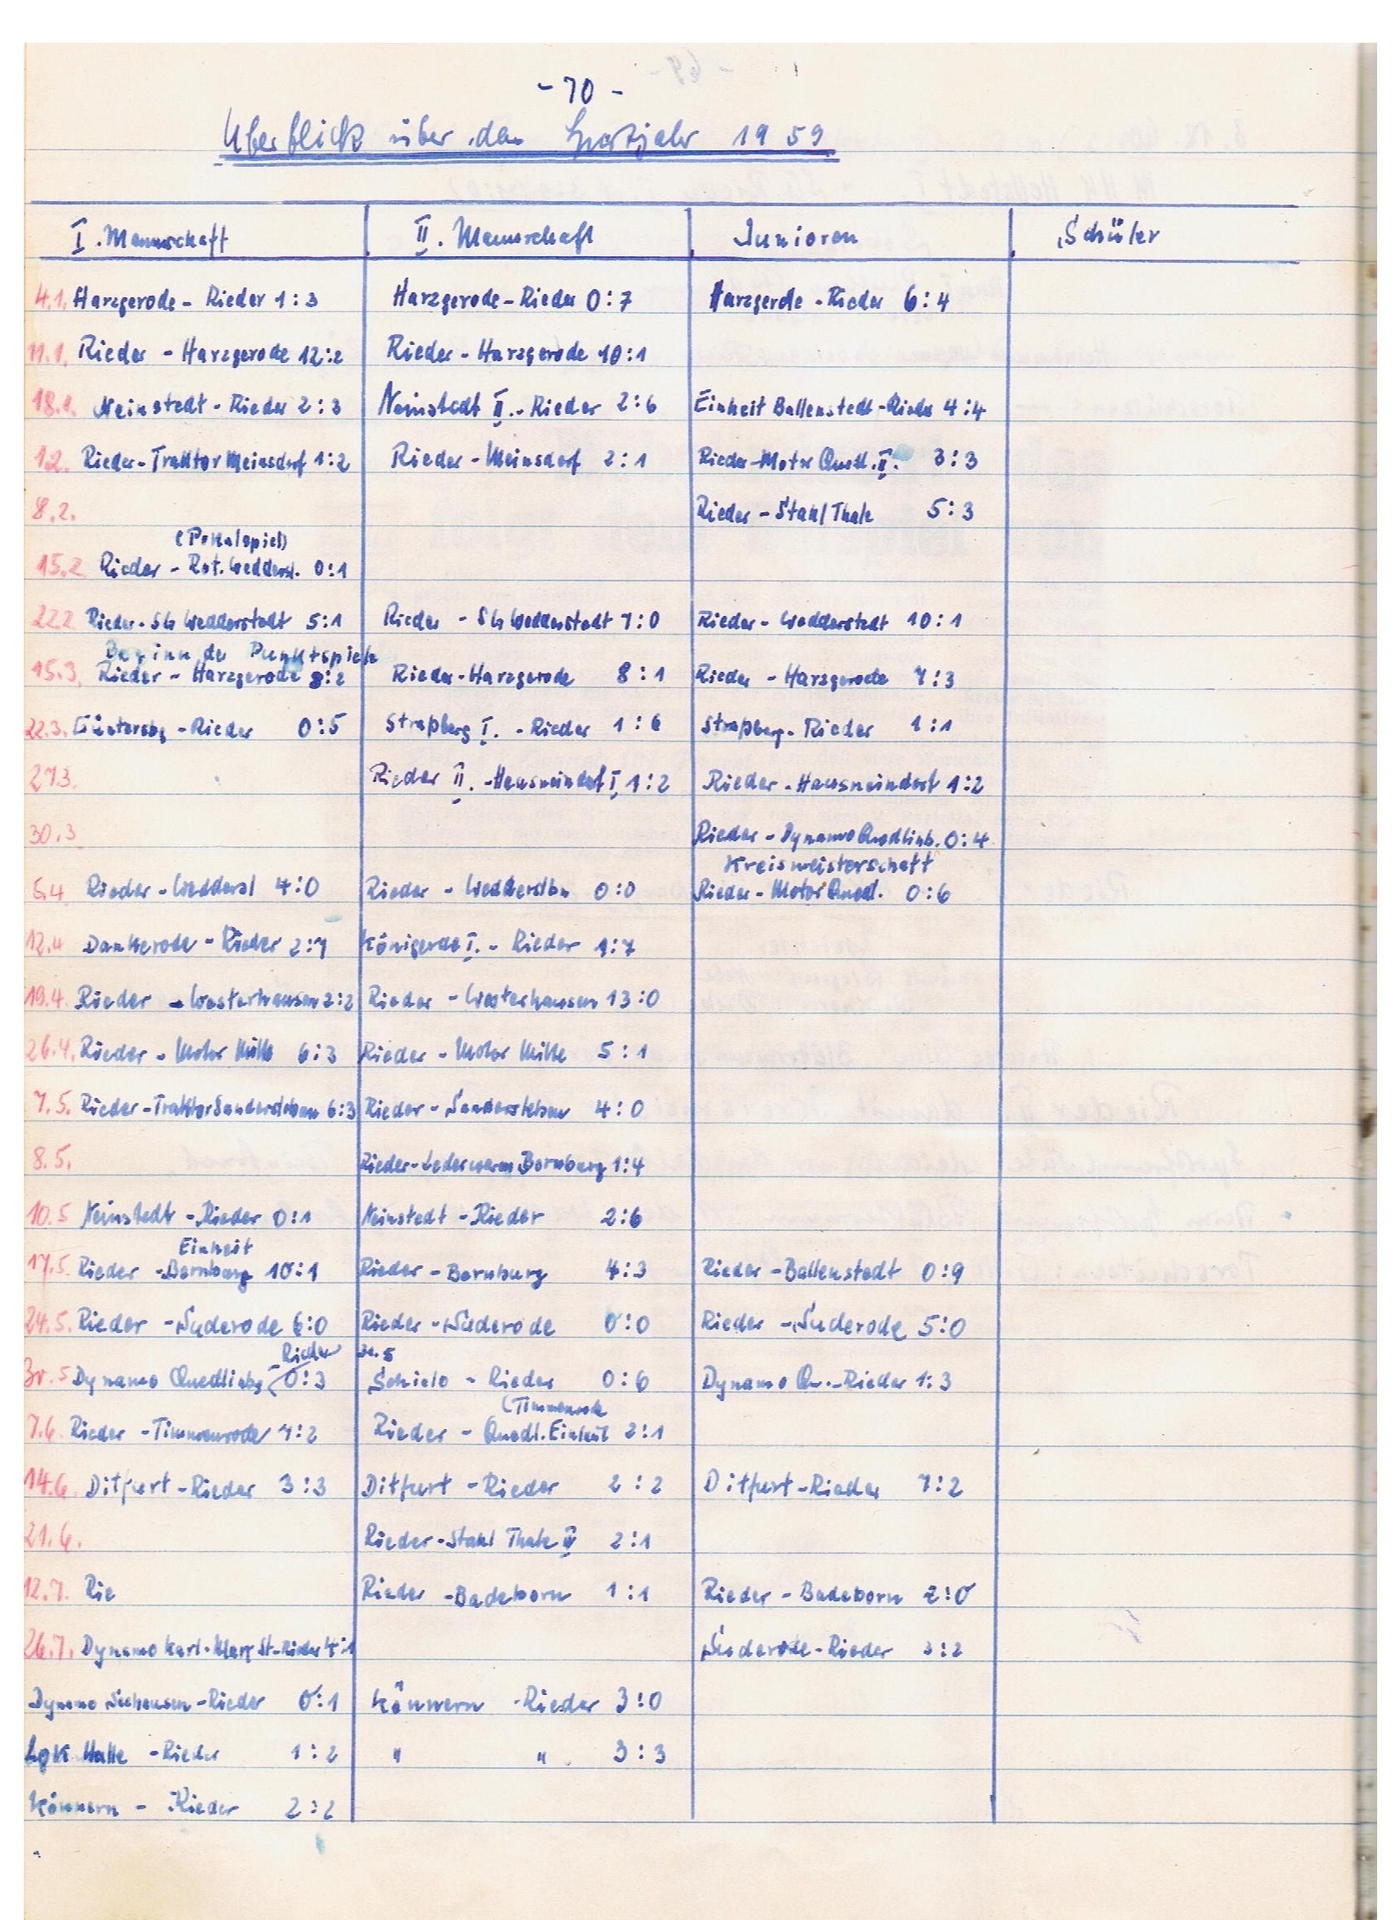 - 70 -
Überblick über das Sportjahr 1959
I. Mannschaft II. Mannschaft Junioren Schüler
4.1. Harzgerode - Rieder 1:3 Harzgerode - Rieder 0:7 Harzgerde - Rieder 6:4
11.1. Rieder - Harzgerode 12:2 Rieder - Harzgerode 10:1
18.1. Neinstedt - Rieder 2:3 Neinstedt II. - Rieder 2:6 Einheit Ballenstedt - Rieder 4:4
1.2. Rieder - Traktor Meinsdorf 1:2 Rieder - Meinsdorf 2:1 Rieder - Motor Quedl. II. 3:3
8.2. Rieder - Stahl Thale 5:3
(Pokalspiel)
15.2. Rieder - Rot. Wedderst. 0:1
22.2. Rieder - SG Wedderstedt 5:1 Rieder - SG Wedderstedt 7:0 Rieder - Wedderstedt 10:1
Beginn der Punktspiele
15.3. Rieder - Harzgerode 8:2 Rieder - Harzgerode 8:1 Rieder - Harzgerode 7:3
22.3. Güntersbg - Rieder 0:5 Straßberg I. - Rieder 1:6 Straßberg - Rieder 1:1
27.3. Rieder II. - Hausneindorf I. 1:2 Rieder - Hausneindorf 1:2
30.3. Rieder - Dynamo Quedlinb. 0:4
Kreismeisterschaft
5.4 Rieder - Wedderst 4:0 Rieder - 0:0 Rieder - Motor Quedl. 0:6
12.4 Dankerode - Rieder 2:7 Königerode I. - Rieder 1:7
19.4. Rieder - Westerhausen 2:2 Rieder - Westerhausen 13:0
26.4. Rieder - Motor Mitte 6:3 Rieder - Motor Mitte 5:1
7.5. Rieder - Traktor Sandersleben 6:3 Rieder - Sandersleben 4:0
8.5. Rieder - Lederwaren Bernburg 1:4
10.5 Neinstedt - Rieder 0:1 Neinstedt - Rieder 2:6
Einheit
17.5. Rieder - Bernburg 10:1 Rieder - Bernburg 4:3 Rieder - Ballenstedt 0:9
24.5. Rieder - Suderode 6:0 Rieder - Suderode 0:0 Rieder - Suderode 5:0
- Rieder 31.5
30.5 Dynamo Quedlinbg 0:3 Schielo - Rieder 0:6 Dynamo Qu. - Rieder 1:3
(Timmenrode
7.6. Rieder - Timmenrode 7:2 Rieder - Quedl. Einheit 2:1
14.6. Ditfurt - Rieder 3:3 Ditfurt - Rieder 2:2 Ditfurt - Rieder 7:2
21.6. Rieder - Stahl Thale 2:1
12.7. Rie Rieder - Badeborn 1:1 Rieder - Badeborn 2:0
26.7. Dynamo Karl-Marx St - Rieder 4:1 Suderode - Rieder 3:2
Dynamo Seehausen - Rieder 0:1 Könnern - Rieder 3:0
Lok Halle - Rieder 1:2 " " 3:3
Könnern - Rieder 2:2